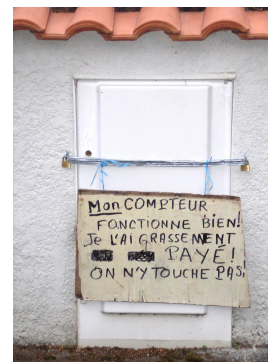 Mon COMPTEUR
FONCTIONNE BIEN!
Je L'AI GRASSEMENT
PAYÉ!
ON N'Y TOUCHE PAS!